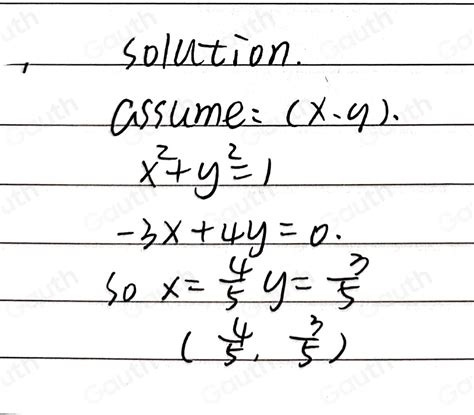 solution.
assume: (x.y).
x²+y²=1
-3x+4y=0.
so x=4/5 y=3/5
(4/5, 3/5)